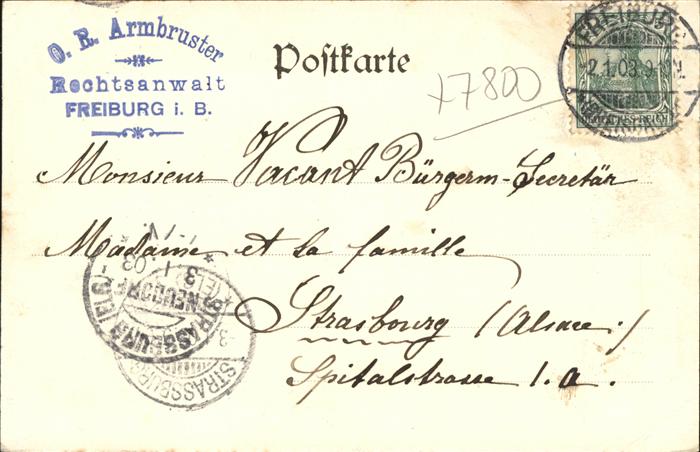 O. R. Armbruster
Rechtsanwalt
FREIBURG i. B.
Postkarte
+7800
FREIBURG
2.1.03.9-10N.
DEUTSCHES REICH
Monsieur Vacant Bürgerm-Secretär
Madame et sa famille
Strasbourg (Alsace.)
Spitalstrasse 1.a.
STRASSBURG (ELS)
NEUDORF
3 1 03
STRASSBURG
3